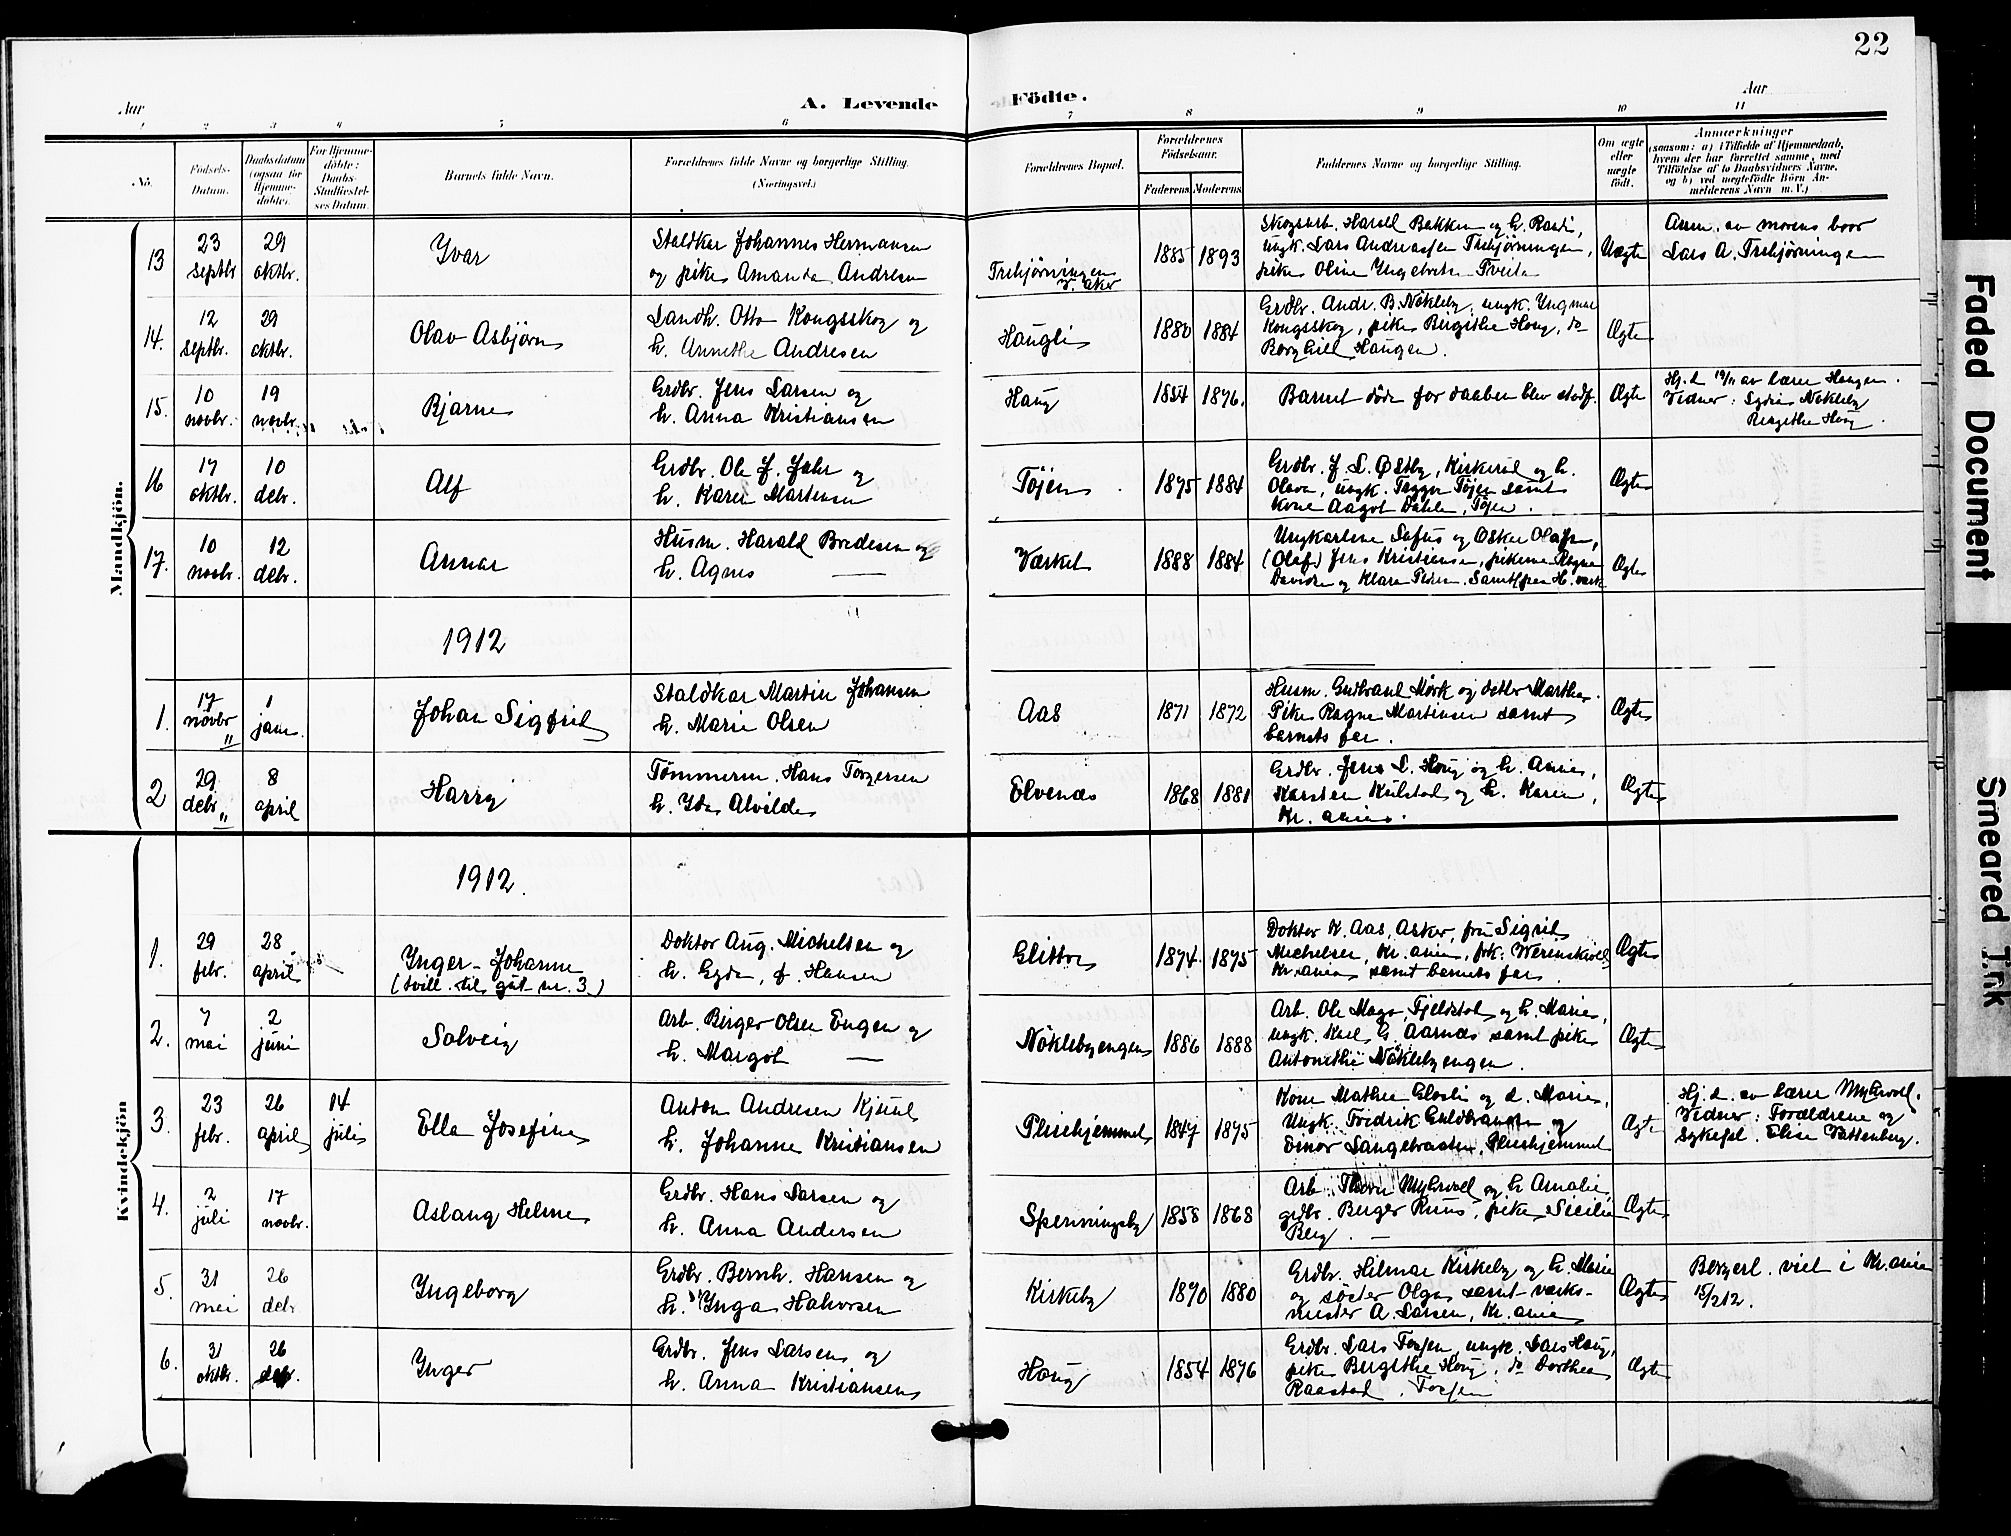 22
Aar
A. Levende Födte.
Aar
1 2 3 4 5 6 7 8 9 10 11
No.
Födsels-
Datum.
Daabsdatum
(ogsaa for
Hjemme-
döbte).
For Hjemme-
döbte:
Daabs-
Stadfæstel-
ses Datum.
Barnets fulde Navn.
Forældrenes fulde Navne og borgerlige Stilling.
(Næringsvei.)
Forældrenes Bopæl.
Forældrenes
Födselsaar.
Faderens Moderens
Faddernes Navne og borgerlige Stilling.
Om ægte
eller
uægte
födt.
Anmærkninger
(saasom: a) i Tilfælde af Hjemmedaab,
hvem der har forrettet samme, med
Tilföielse af to Daabsvidners Navne,
og b) ved uægtefödte Börn An-
melderens Navn m. V.)
Mandkjön.
13
23 septbr.
29 oktbr.
Yvar
Staldkar Johannes Hermansen
og pike Amanda Andresen
Trehjørningen
V. Aker
1885 1893
Skogsarb. Harald Bakken og h.
ungk. Lars Andreassen Trehjørningen,
pike Oline Yngebretsen Tveita
Uægte
Anm. av morens bror
Lars A. Trehjørningen
14.
12 septbr.
29 oktbr.
Olav Asbjørn
Landh. Otto Kongsskog og
h. Annethe Andresen
Haugli
1880 1884
Grdbr. Andr. B. Nökleby, ungk. Yngvar
Kongsskog, pike Birgithe Houg, do
Borghild Haugen.
Ægte
15.
10 novbr.
19 novbr.
Bjarne
Grdbr. Jens Larsen og
h. Anna Kristiansen
Houg
1854 1876.
Barnet døde før daaben blev stadf.
Ægte
Hj. d. av lærer Haugen.
Vidner: Nökleby
Birgithe Houg.
16
17 oktbr.
10 debr.
Alf
Grdbr. Ole J. Jahr og
h. Karen Martinsen
Töjen
1875 1884
Grdbr. J. L. Østby, Kirkerud og h.
Olava, ungk. Töjen samt
kone Aagot Dahlen, Töjen.
Ægte
17.
10 novbr.
12 debr.
Annar
Husm. Harald Bredesen og
h. Agnes —
Værket
1888 1884
Ungkarlene Sofus og Oskar Olafsen,
(Olaf) Jens Kristiansen, pikerne Ragna
Davidsen og Klara Pedersen. Samtl. fra H. værk
Ægte
1912
1.
17 novbr "
1 jan.
Johan Sigfred
Staldkar Martin Johansen
h. Marie Olsen
Aas
1871 1872
Husm. Gudbrand Mörk og datter Marthe.
Pike Ragna Martinsen samt
barnets far.
Ægte
2
29 debr. "
8 april
Harry
Tömmerm. Hans Torgersen
h. Yda Alvilde
Elvenæs
1868 1881
Grdbr. Jens L. Houg og h. Anna,
Karsten Kulstad og h. Karen,
Kr.ania.
Ægte
Kvindekjön
1912.
1.
29 febr.
28 april
Ynger-Johanne
(tvill. til gut nr. 3)
Doktor Aug. Michelsen og
h. Egda, f. Hansen
Glittre
1874. 1875
Doktor K. Aas, Asker, fru Sigrid
Michelsen, Kr.ania, frk. Werenskiold,
Kr.ania samt barnets far.
Ægte
2.
7 mai
2 juni
Solveig
Arb. Birger Olsen Engen og
h. Margot —
Nöklebyengen
1886 1888
Arb. Ole Mago, Fjeldstad og h. Marie,
ungk. Karl G. Aarnæs samt pike
Antonethe Nöklebyengen.
Ægte
3.
23 febr.
26 april
14 juli
Ella Josefine
Anton Andresen Kjuul
h. Johanne Kristiansen
Pleiehjemmet
1847 1875
Kone Mathea Glosli og d. Marie,
Ungk. Fridrik Guldbrandsen og
Einar Langebraaten, Pleiehjemmet
Ægte
Hj. d. av lærer Myhrvold.
Vidner: Forældrene og
sykepl. Elise Vattenberg.
4.
2 juli
17 novbr.
Aslaug Helene
Grdbr. Hans Larsen og
h. Anna Andersen
Spenningsby
1858 1868
Arb. Thorv. Myhrvold og h. Amalie,
grdbr. Birger Ruus, pike Sicilie
Berg. —
Ægte
5.
31 mai
26 debr
Yngeborg
Grdbr. Bernh. Hansen og
h. Ynga Halvorsen
Kirkeby
1870 1880
Grdbr. Hilmar Kirkeby og h. Marie
og søster Olga samt verks-
mester A. Larsen, Kr.ania
Ægte
Borgerl. viet i Kr.ania
15/2 12.
6.
31 oktbr.
26 debr.
Ynger
Grdbr. Jens Larsen og
h. Anna Kristiansen
Houg
1854 1876
Grdbr. Lars Fossen, ungk. Lars Houg,
pike Birgithe Houg, do Dorthea
Raastad, Fossen
Ægte
Faded Document
Smeared Ink